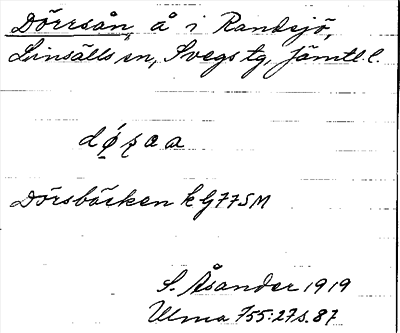 Dörrsån, å i Randsjö,
Linsälls sn, Svegs tg, Jämtl.l.
Dörsbäcken k G77SM
S. Åsander 1919
Ulma 755:27 s. 87